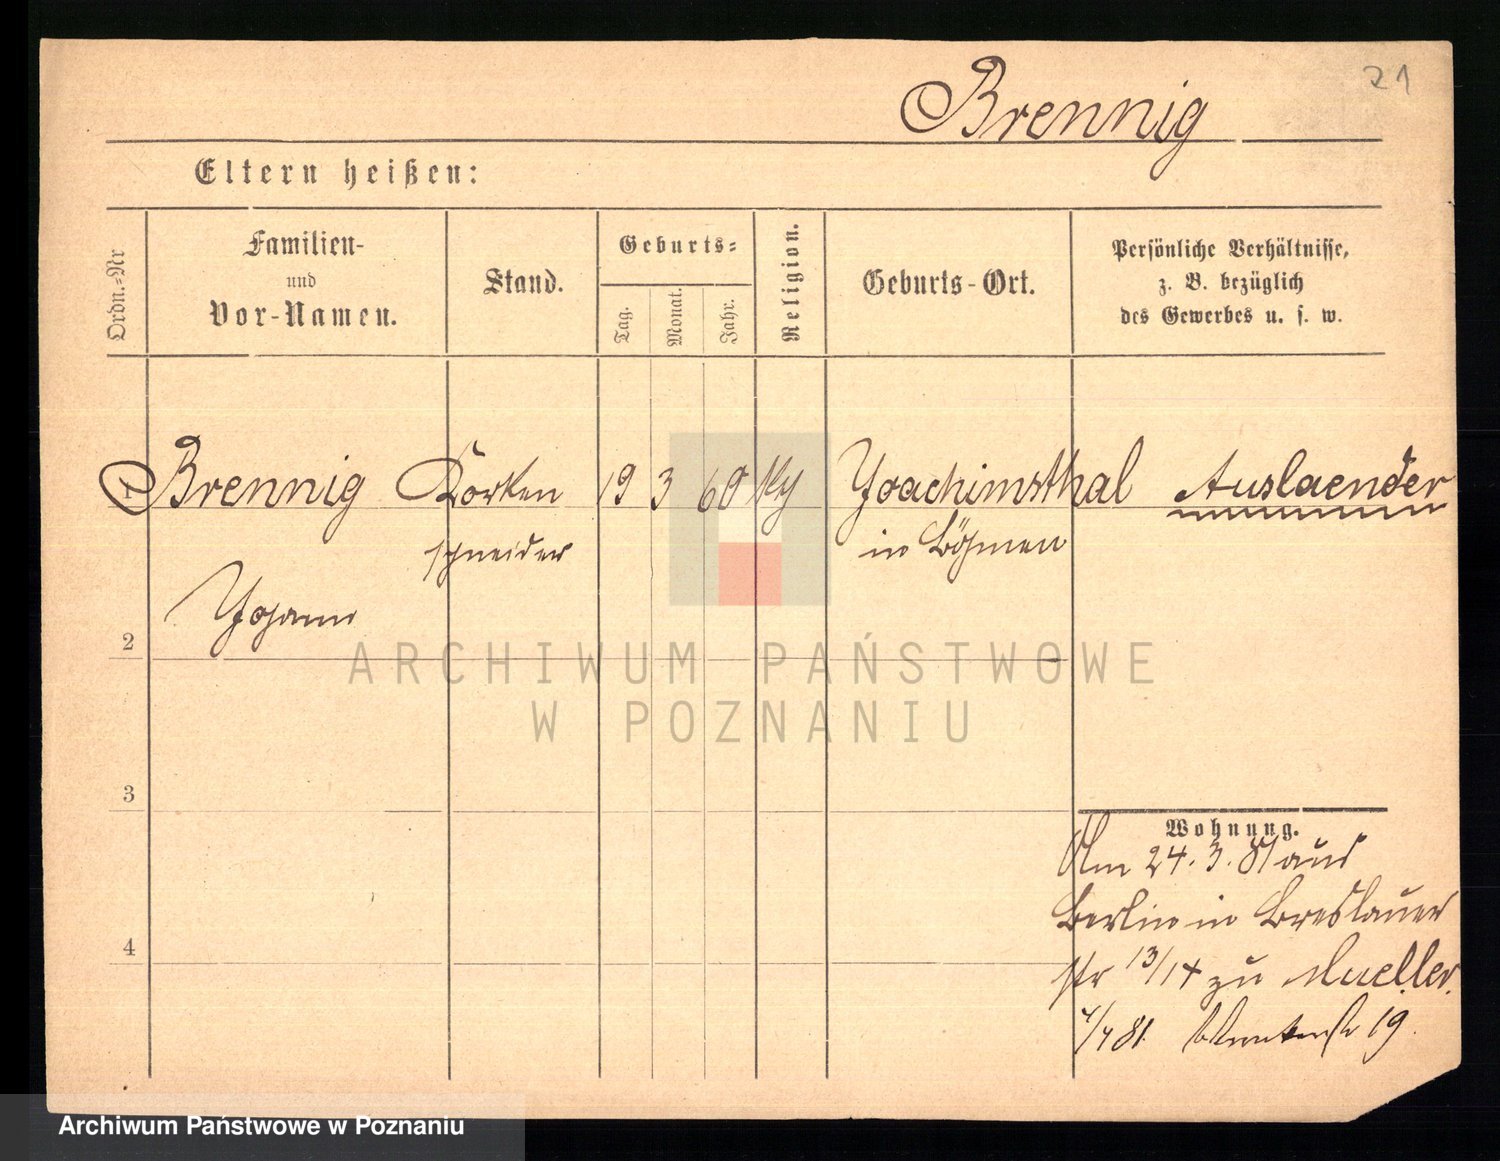 21
Brennig
Eltern heißen:
Ordn.-Nr
Familien-
und
Vor-Namen.
Stand.
Geburts-
Tag.
Monat.
Jahr.
Religion.
Geburts-Ort.
Persönliche Verhältnisse,
z. B. bezüglich
des Gewerbes u. s. w.
1 Brennig Korken 19 3 60 Joachimsthal Auslaender
schneider in Böhmen
Johann
2
ARCHIWUM PAŃSTWOWE
W POZNANIU
3
Wohnung.
Am 24. 3. 81 aus
Berlin in Breslauer
4
str 13/14 zu Mueller.
4/4 81. 19.
Archiwum Państwowe w Poznaniu